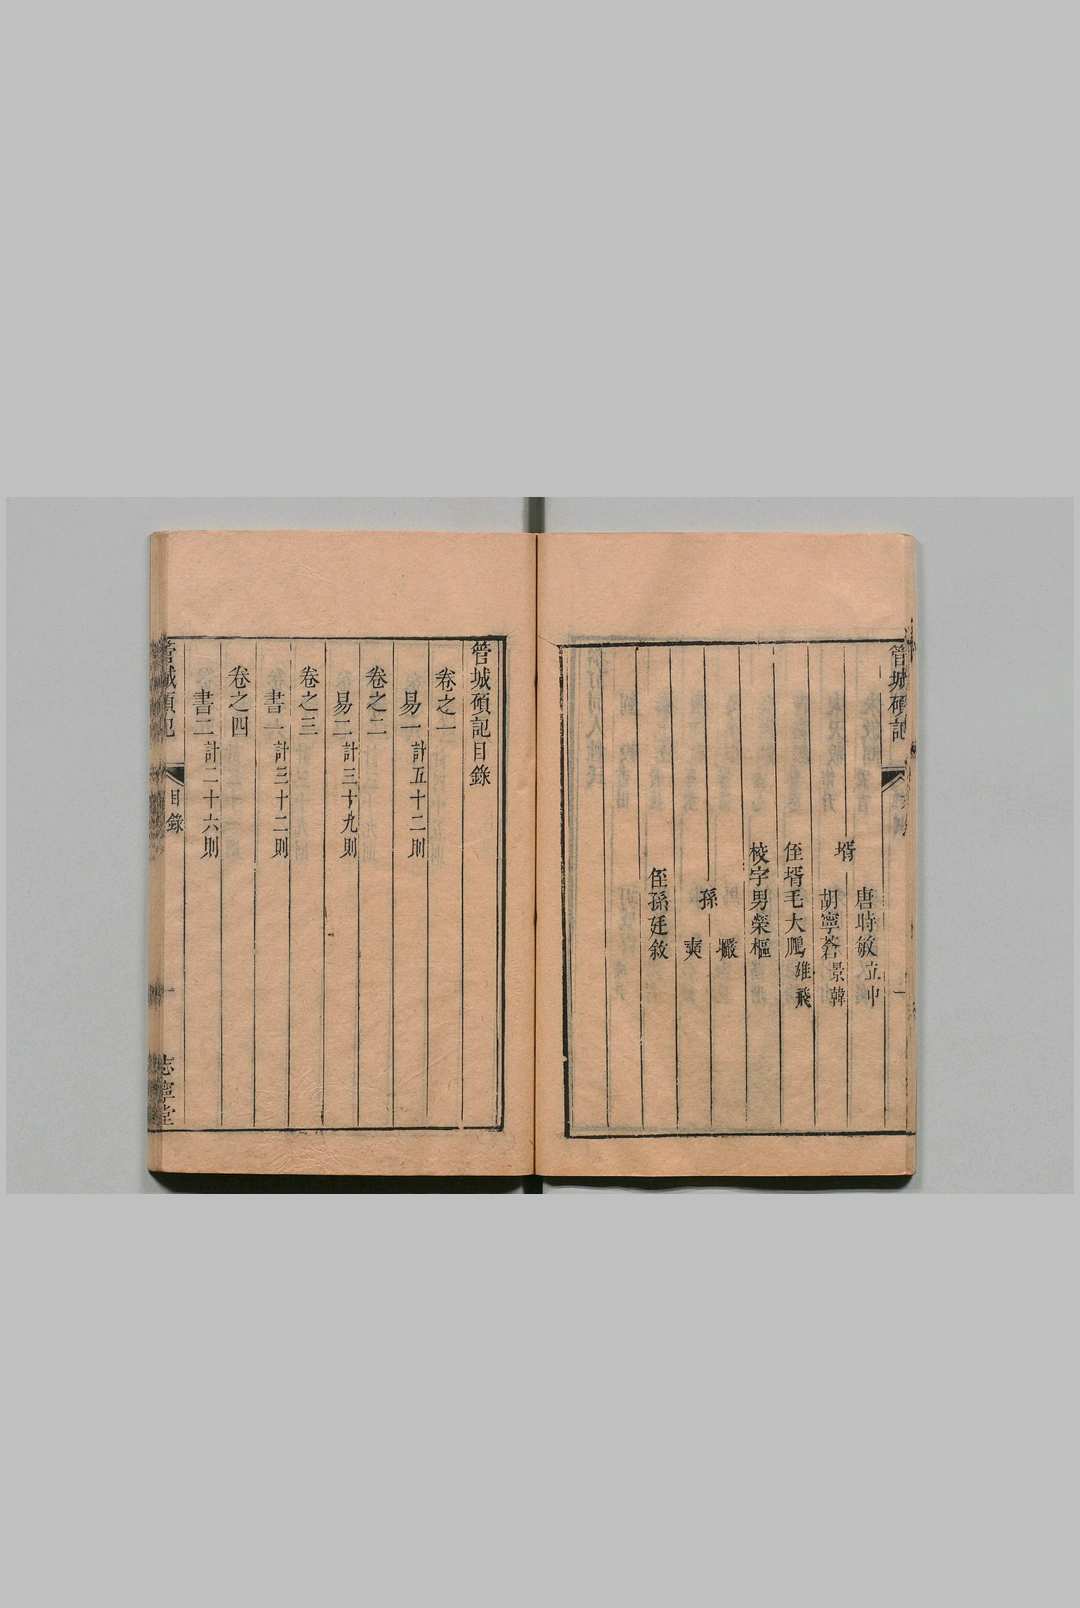 管城碩記
一
唐時敏立中
壻
胡寧蒼景韓
侄壻毛大鵬雄飛
校字男榮樞
巖
孫
奭
侄孫廷敘
管城碩記目錄
卷之一
易一計五十二則
卷之二
易二計三十九則
卷之三
書一計三十二則
卷之四
書二計二十六則
管城碩記
目錄
一
志寧堂